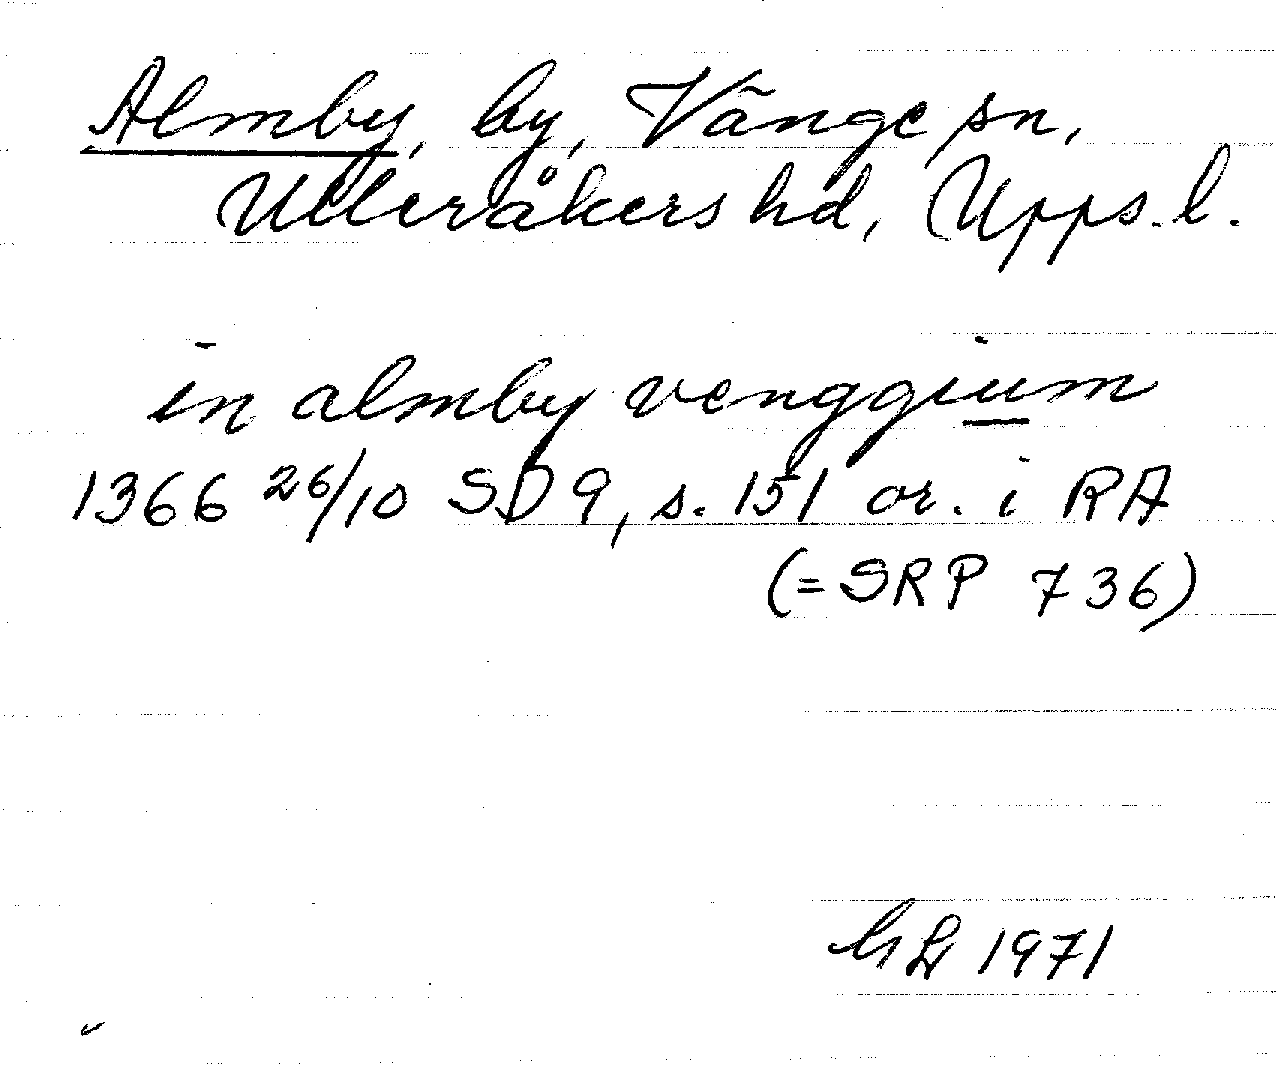 Almby, by, Vänge sn,
Ulleråkers hd, Upps. l.
in almby venggium
1366 26/10 SD 9, s. 151 or. i RA
(= SRP 736)
1971